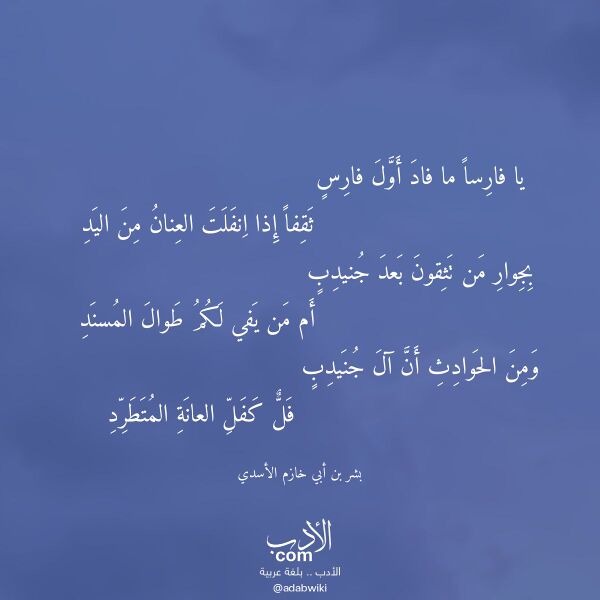 يا فارِساً ما فادَ أَوَّلَ فارِسٍ
ثَقِفاً إِذا اِنفَلَتَ العِنانُ مِنَ اليَدِ
بِجِوارِ مَن تَثِقونَ بَعدَ جُنيدِبٍ
أَم مَن يَفي لَكُمُ طَوالَ المُسنَدِ
وَمِنَ الحَوادِثِ أَنَّ آلَ جُنَيدِبٍ
فَلٌّ كَفَلِّ العانَةِ المُتَطَرِّدِ
بشر بن أبي خازم الأسدي
الأدب
com
الأدب .. بلغة عربية
@adabwiki